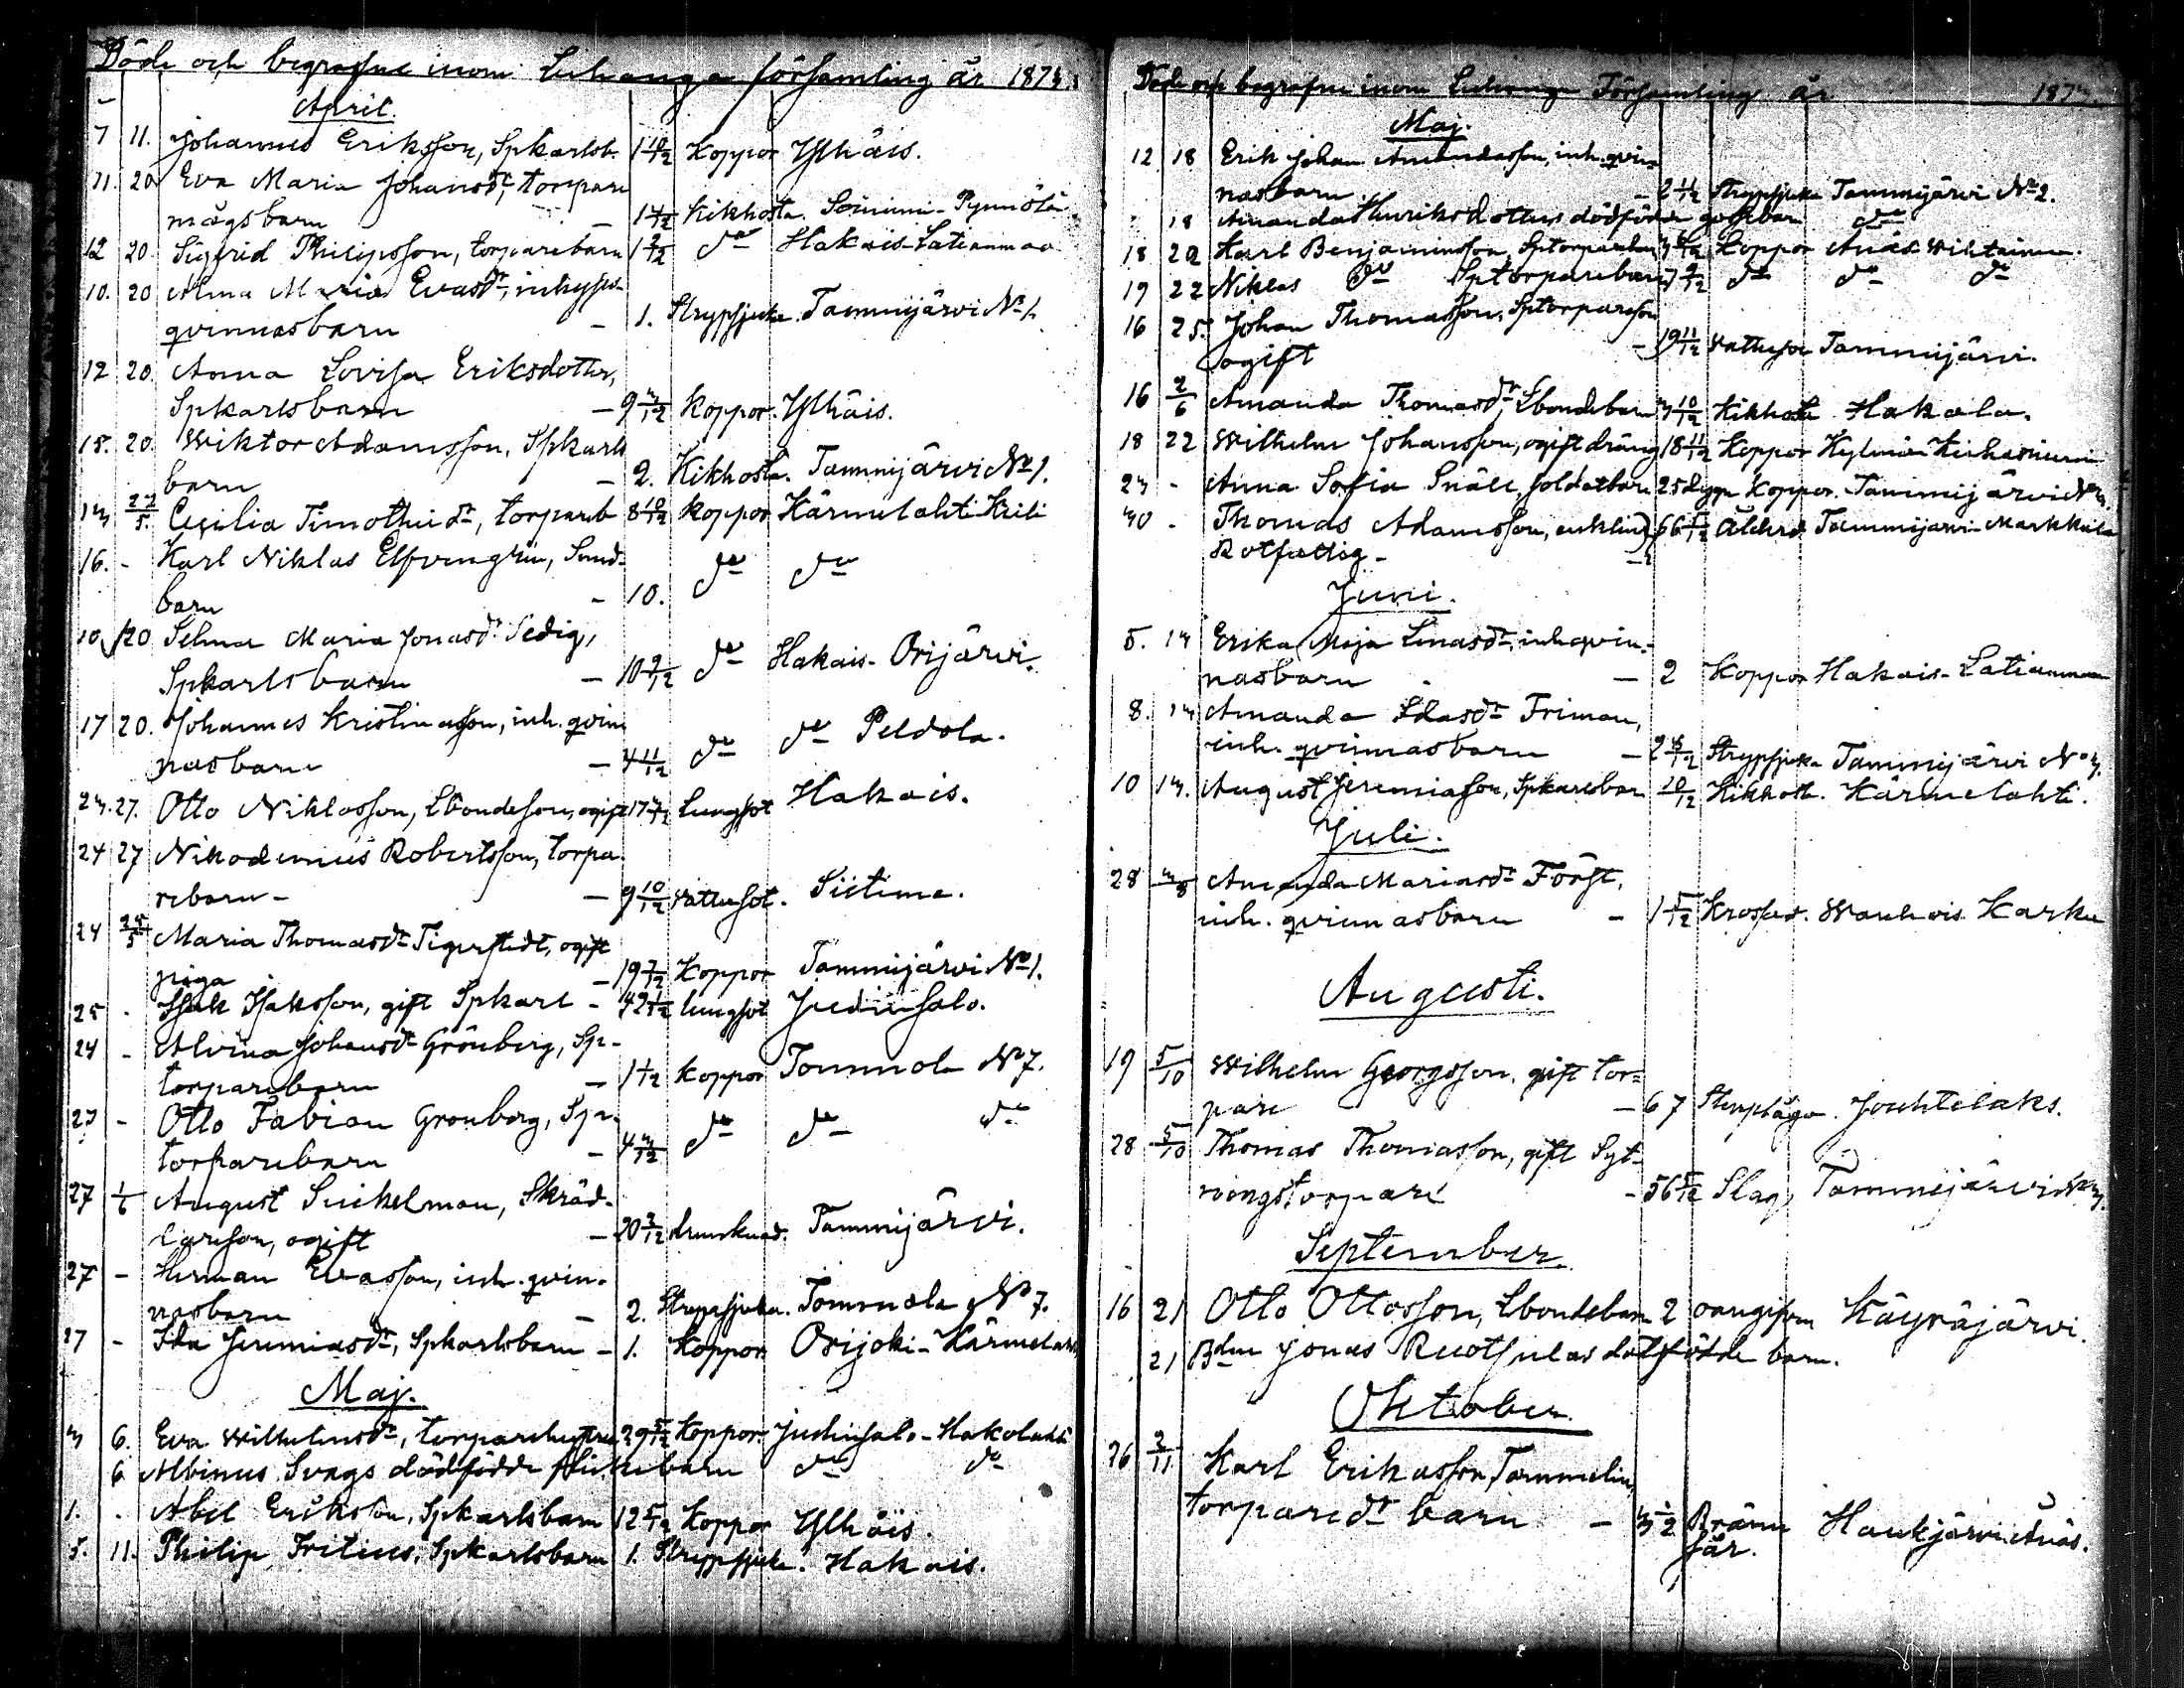 Döde och begrafne inom Luhanga församling år 1873.
April.
7 11. Johannes Eriksson, Spkarlsb. 1 10/12 Koppor Ylhäis.
11. 20 Eva Maria Johansdr, torpare
mågsbarn – 1 4/12 Kikhosta. Soinimi-Pynnölä
12 20. Sigfrid Philipsson, torparebarn 1 2/12 do Hakais-Latianmaa
10. 20 Alma Maria Evasdr, inhyses-
qvinnasbarn – 1. Strypsjuka. Tammijärvi No 1.
12 20. Anna Lovisa Eriksdotter,
Spkarlsbarn – 9 3/12 Koppor. Ylhäis.
15. 20. Wiktor Adamsson, Spkarls
barn – 2. Kikhosta. Tammijärvi No 1.
13 22/5. Cecilia Timotheidr, torpareb 8 10/12 Koppor Kärmelahti Krili
16. - Karl Niklas Elfvengren, Smed-
barn – 10. do do
10. 20 Selma Maria Jonasdr Sedig,
Spkarlsbarn – 10 9/12 do Hakais-Orijärvi.
17 20. Johannes Kristinasson, inh. qvin
nasbarn – 4 11/12 do do Peldola.
23. 27. Otto Niklasson, Lbondeson, ogift 17 7/12 Lungsot Hakais.
24 27 Nikodemus Robertsson, torpa-
rebarn – 9 10/12 Vattusot. Siitima.
24 25/5 Maria Thomasdr Tigerstedt, ogift
piga – 19 7/12 Koppor Tammijärvi No 1.
25 - Isak Isaksson, gift Spkarl - 42 1/12 lungsot Judinsalo.
24 - Alvina Johansdr Grönberg, Sp-
torparebarn – 1 1/12 Koppor Tommola No 7.
27 - Otto Fabian Gronberg, Sp-
torparebarn – 4 3/12 do do do
27 1/6 August Suikelman, Skräd-
dareson, ogift – 20 3/12 drunknad. Tammijärvi.
27 - Herman Evasson, inh. qvin-
nasbarn – 2. Strypsjuka. Tommola No 7.
27 - Ida Jeremiasdr, Spkarlsbarn – 1. Koppor Orijoki-Kärmelaht
Maj.
3 6. Eva Wilhelmsdr, torparehustru 29 5/12 Koppor. Judinsalo-Hakolahti
6 Albinus Svags dödfödde flickebarn do do
1. . Abel Eriksson, Spkarlsbarn 12 5/12 Koppor Ylhäis.
5. 11. Philip Fritius, Spkarlsbarn 1. Strypsjuka. Hakais.
Döde och begrafne inom Luhanga Församling år 1873.
Maj.
12 18 Erik Johan Amandasson, inh. qvin-
nasbarn – 2 11/12 Strypsjuka Tammijärvi No 2.
18 Amanda Henriksdotters dödfödde gossebarn do
18 22 Karl Benjaminsson, Sptorparebarn Koppor Avas-Wihtainen.
19 22 Niklas do Sptorparebarn 7 9/12 do do do
16 25. Johan Thomasson, Sptorpareson
ogift – 19 11/12 Vattusot Tammijärvi.
16 2/6 Amanda Thomasdr, Lbondebarn 3 10/12 Kikhosta Hakala.
18 22 Wilhelm Johansson, ogift dräng 18 11/12 Koppor
23 - Anna Sofia Snäll, soldatbarn 25 dygn Koppor. Tammijärvi No 3
30 - Thomas Adamsson, enkling 66 5/12 Ålderd. Tammijärvi-Markkula
Rotfattig –
Juni.
5. 14 Erika Maja Linasdr inhqvin-
nasbarn – 2 Koppor Hakais-Latianmaa
8. 14 Amanda Idasdr Friman,
inh. qvinnasbarn – 2 8/12 Strypsjuka Tammijärvi No 3.
10 14. August Jeremiasson, Spkarlsbar 10/12 Kikhosta. Kärmelahti.
Juli.
28 3/8 Amanda Mariasdr Först,
inh. qvinnasbarn – 1 5/12 Karku
Augusti.
19 5/10 Wilhelm Georgsson, gift tor-
pare – 67 Stenplåga. Jouhtilaks.
28 5/10 Thomas Thomasson, gift Syt-
ningstorpare – 56 5/12 Slag, Tammijärvi No 3.
September.
16 21 Otto Ottosson, Lbondebarn 2 oangifven Käyräjärvi.
21 Bden Jonas Ruotsulas dödfödde barn.
Oktober.
26 2/11 Karl Eriksson Tammelin,
torparedr barn – Bränn Haukjärvi Avas.
sår.